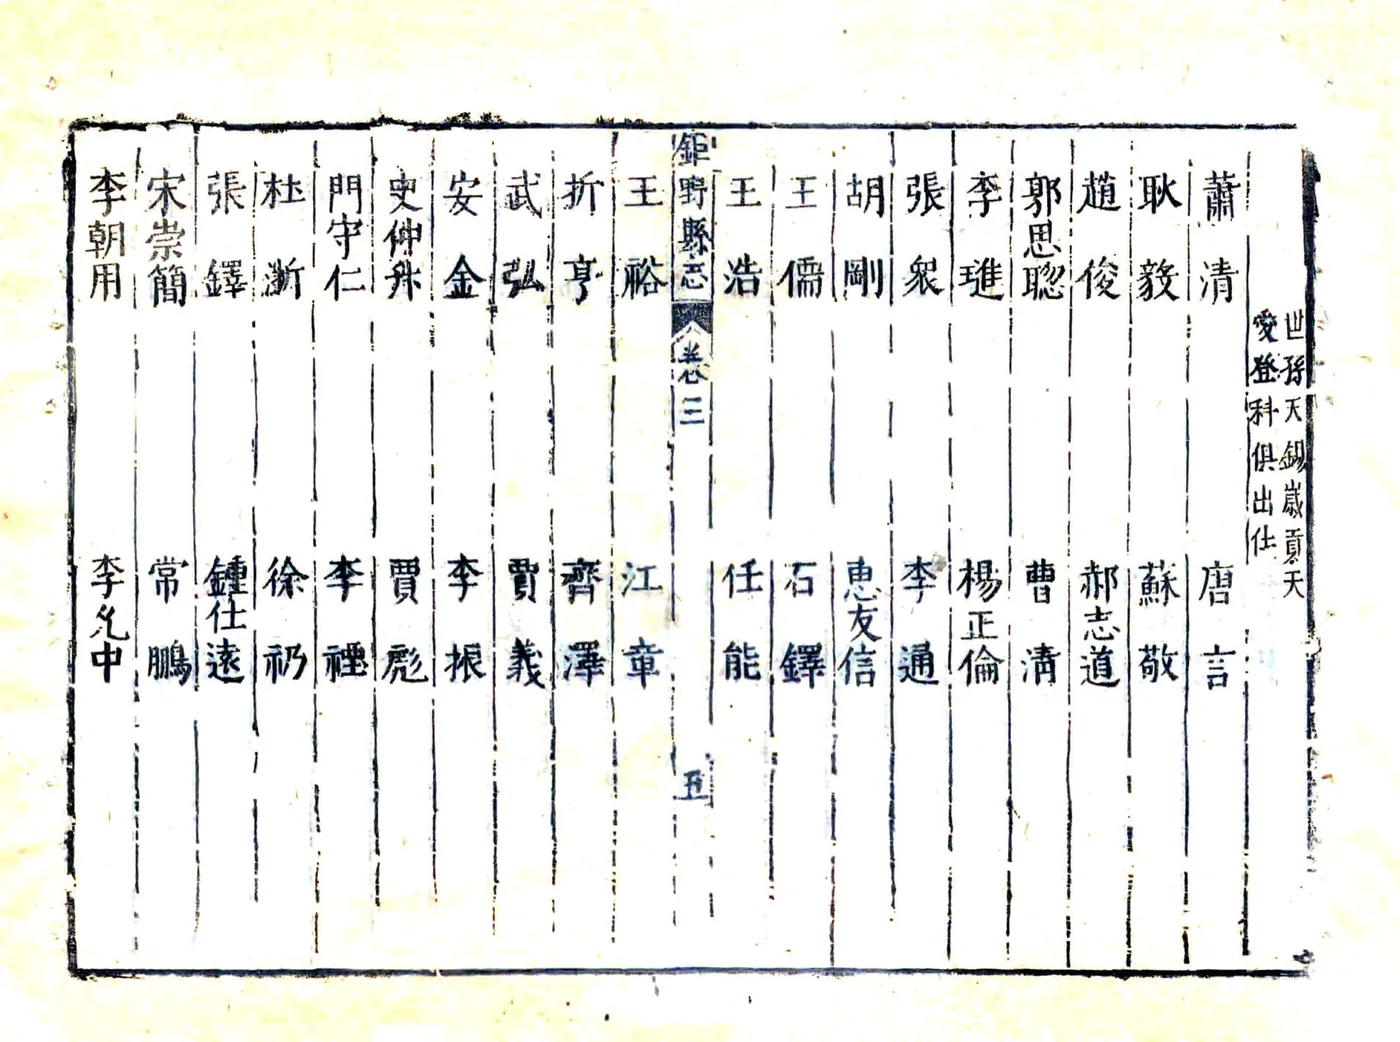 世孫天錫歲貢天
愛登科俱出仕
蕭清 唐言
耿毅 蘇敬
趙俊 郝志道
郭思聦 曹清
李璡 楊正倫
張衆 李通
胡剛 恵友信
王儒 石鐸
王浩 任能
鉅野縣志 卷三 五
王裕 江章
折亨 齊澤
武弘 賈義
安金 李振
史仲 賈彪
門守仁 李
杜漸 徐礽
張鐸 鍾仕遠
宋崇簡 常鵬
李朝用 李允中